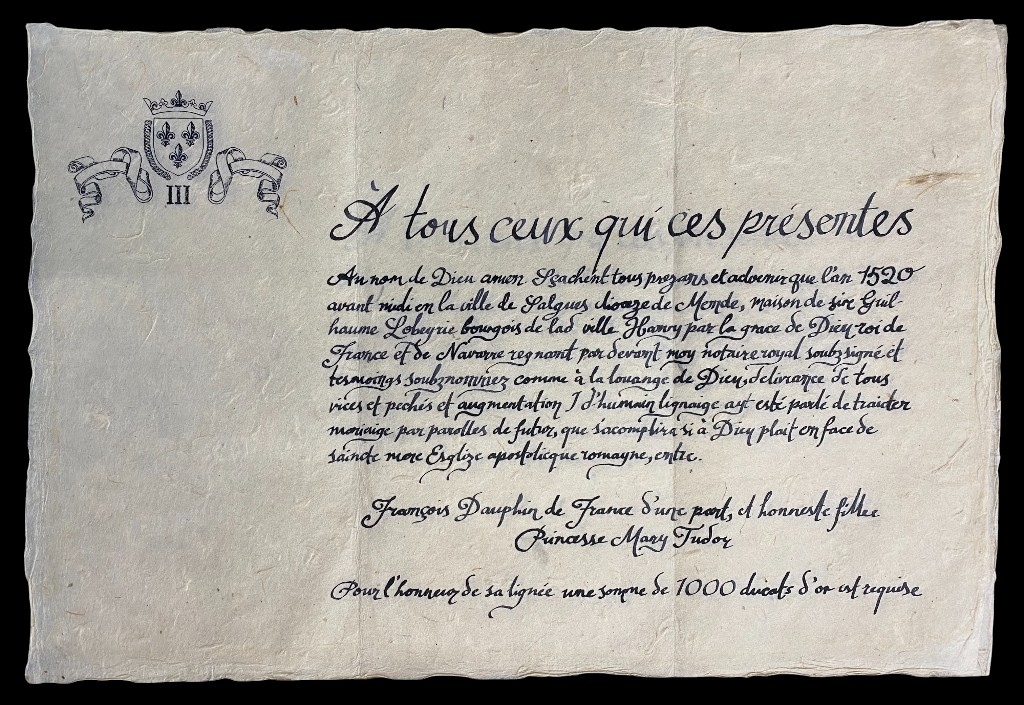 III
À tous ceux qui ces présentes
Au nom de Dieu amen Sçachent tous prezans et advenir que l'an 1520
avant midi en la ville de Salgues dioceze de Memde, maison de sire Guil-
haume Lobeyrie bourgois de lad ville Hanry par la grace de Dieu roi de
France et de Navarre regnant par devant moy notaire royal soubzsigné et
tesmoings soubznommez comme à la louange de Dieu, delivrance de tous
vices et pechés et augmentation d'humain lignaige ayt esté parlé de traicter
mariaige par parolles de futur, que s'acomplira si à Dieu plait en face de
saincte mere Esglize apostolicque romayne, entre.
François Dauphin de France d'une part, et honneste fillee
Princesse Mary Tudor
Pour l'honneur de sa lignée une somme de 1000 ducats d'or est requise